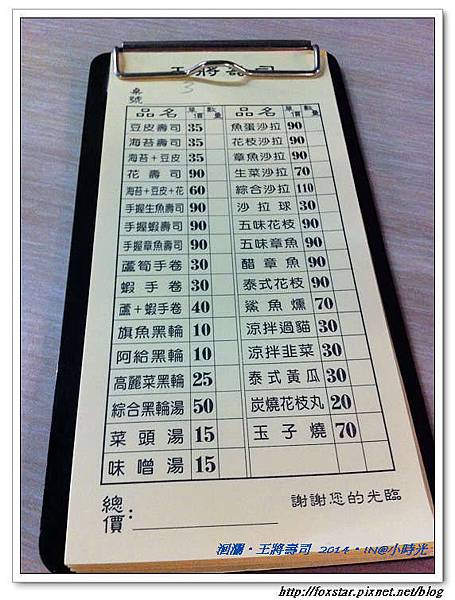 王將壽司
桌號 3
品名 單價 數量 品名 單價 數量
豆皮壽司 35 魚蛋沙拉 90
海苔壽司 35 花枝沙拉 90
海苔+豆皮 35 章魚沙拉 90
花壽司 90 生菜沙拉 70
海苔+豆皮+花 60 綜合沙拉 110
手握生魚壽司 90 沙拉球 30
手握蝦壽司 90 五味花枝 90
手握章魚壽司 90 五味章魚 90
蘆筍手卷 30 醋章魚 90
蝦手卷 30 泰式花枝 90
蘆+蝦手卷 40 鯊魚燻 70
旗魚黑輪 10 涼拌過貓 30
阿給黑輪 10 涼拌韭菜 30
高麗菜黑輪 25 泰式黃瓜 30
綜合黑輪湯 50 炭燒花枝丸 20
菜頭湯 15 玉子燒 70
味噌湯 15
總價:
謝謝您的光臨
洄瀾・王將壽司 2014・IN@小時光
http://foxstar.pixnet.net/blog